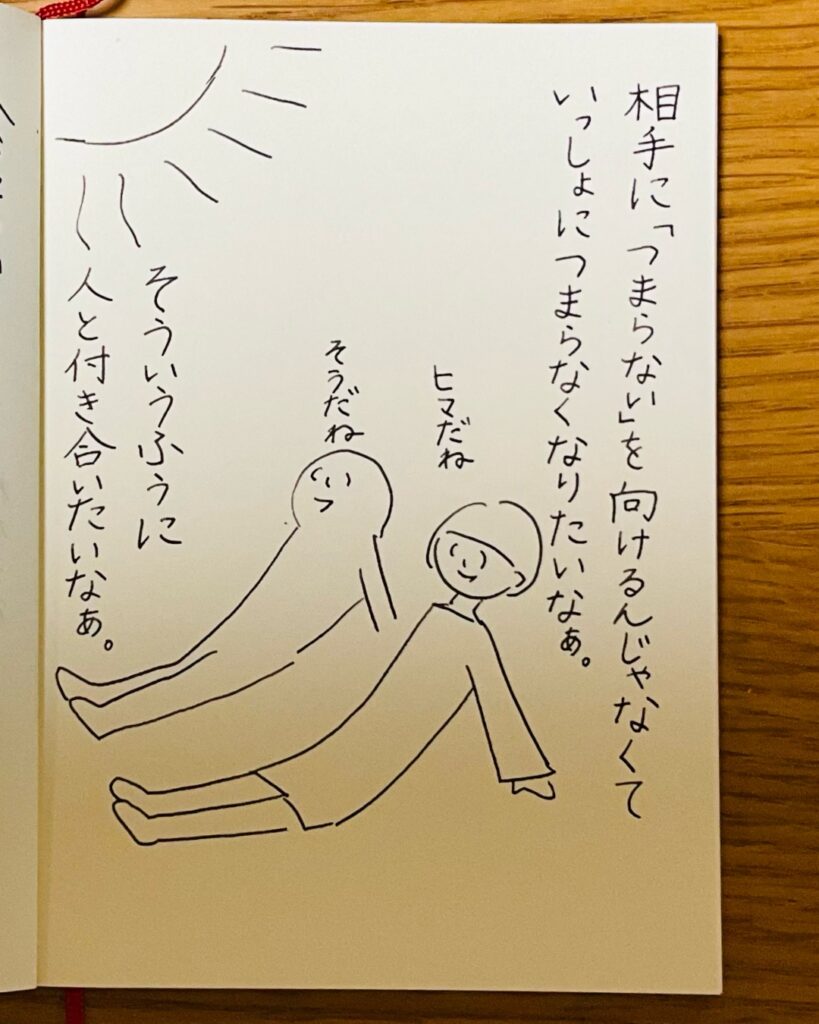 相手に「つまらない」を向けるんじゃなくて
いっしょにつまらなくなりたいなぁ。
ヒマだね
そうだね
そういうふうに
人と付き合いたいなぁ。